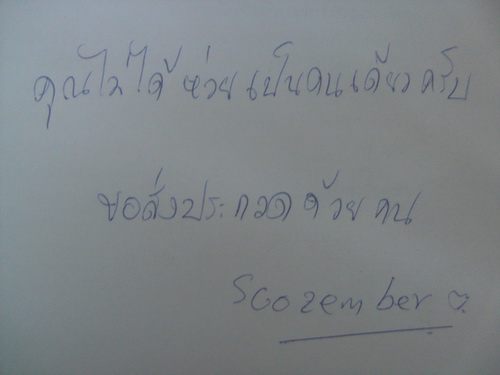 คุณไม่ได้ ห่วย เป็นคนเดียว ครับ
ขอส่งประกวด ด้วย คน
Scozember